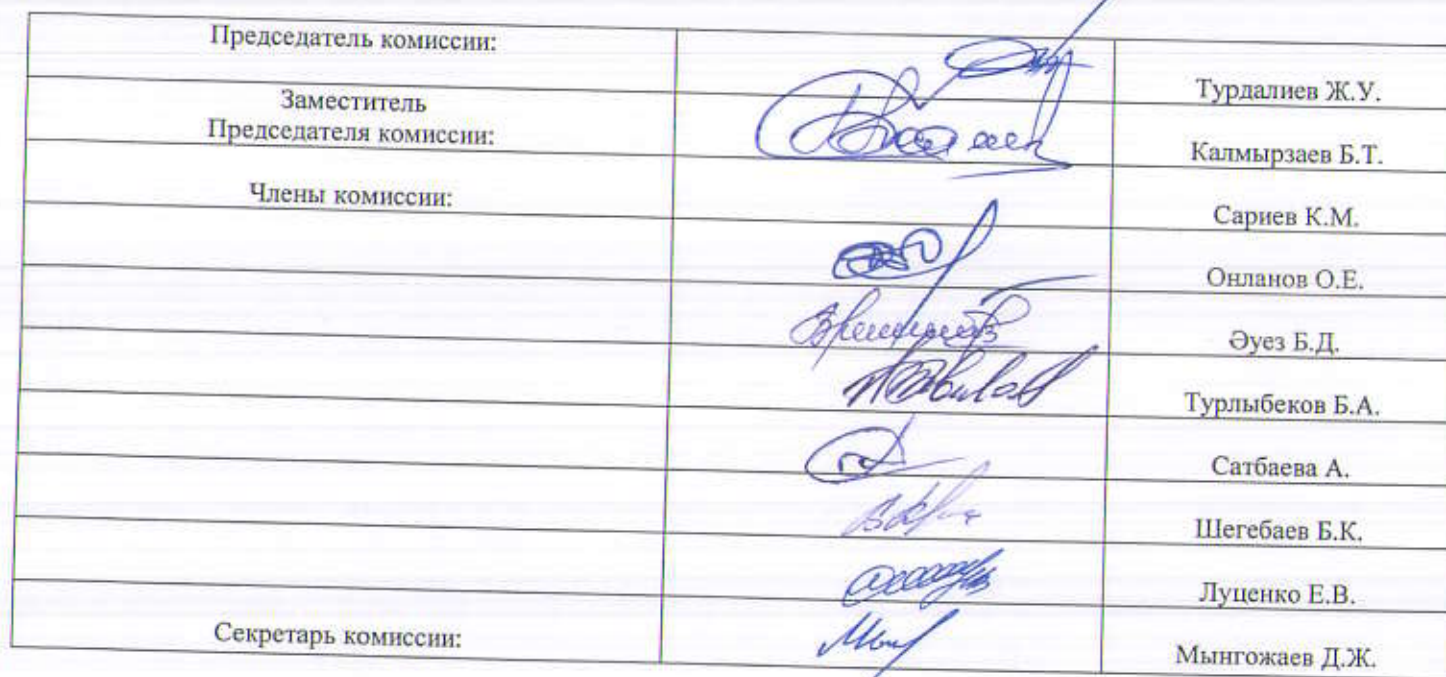 Председатель комиссии:
Турдалиев Ж.У.
Заместитель
Председателя комиссии:
Калмырзаев Б.Т.
Члены комиссии:
Сариев К.М.
Онланов О.Е.
Әуез Б.Д.
Турлыбеков Б.А.
Сатбаева А.
Шегебаев Б.К.
Луценко Е.В.
Секретарь комиссии:
Мынгожаев Д.Ж.